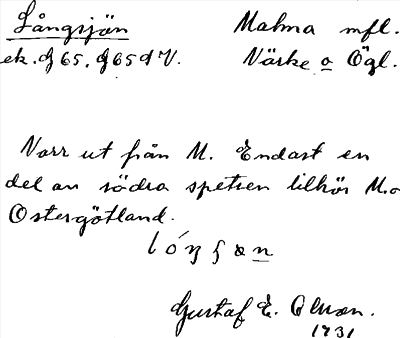 Långsjön Malma mfl.
ek. g 65. g 65 d V. Närke o Ögl.
Norr ut från M. Endast en
del av södra spetsen tillhör M. o
Östergötland.
Gustaf E. Olson.
1931